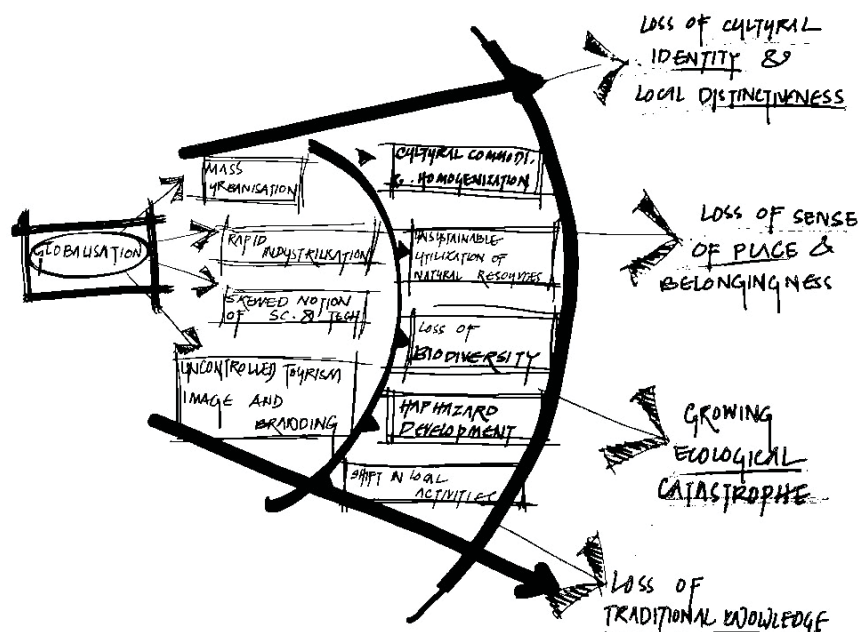 GLOBALISATION
MASS
URBANISATION
RAPID
INDUSTRILISATION
SKEWED NOTION
OF SC. & TECH
UNCONTROLLED TOURISM
IMAGE AND
BRANDING
CULTURAL COMMODI.
& HOMOGENISATION
UNSUSTAINABLE
UTILIZATION OF
NATURAL RESOURCES
LOSS OF
BIODIVERSITY
HAPHAZARD
DEVELOPMENT
SHIFT IN LOCAL
ACTIVITIES
LOSS OF CULTURAL
IDENTITY &
LOCAL DISTINCTIVENESS
LOSS OF SENSE
OF PLACE &
BELONGINGNESS
GROWING
ECOLOGICAL
CATASTROPHE
LOSS OF
TRADITIONAL KNOWLEDGE